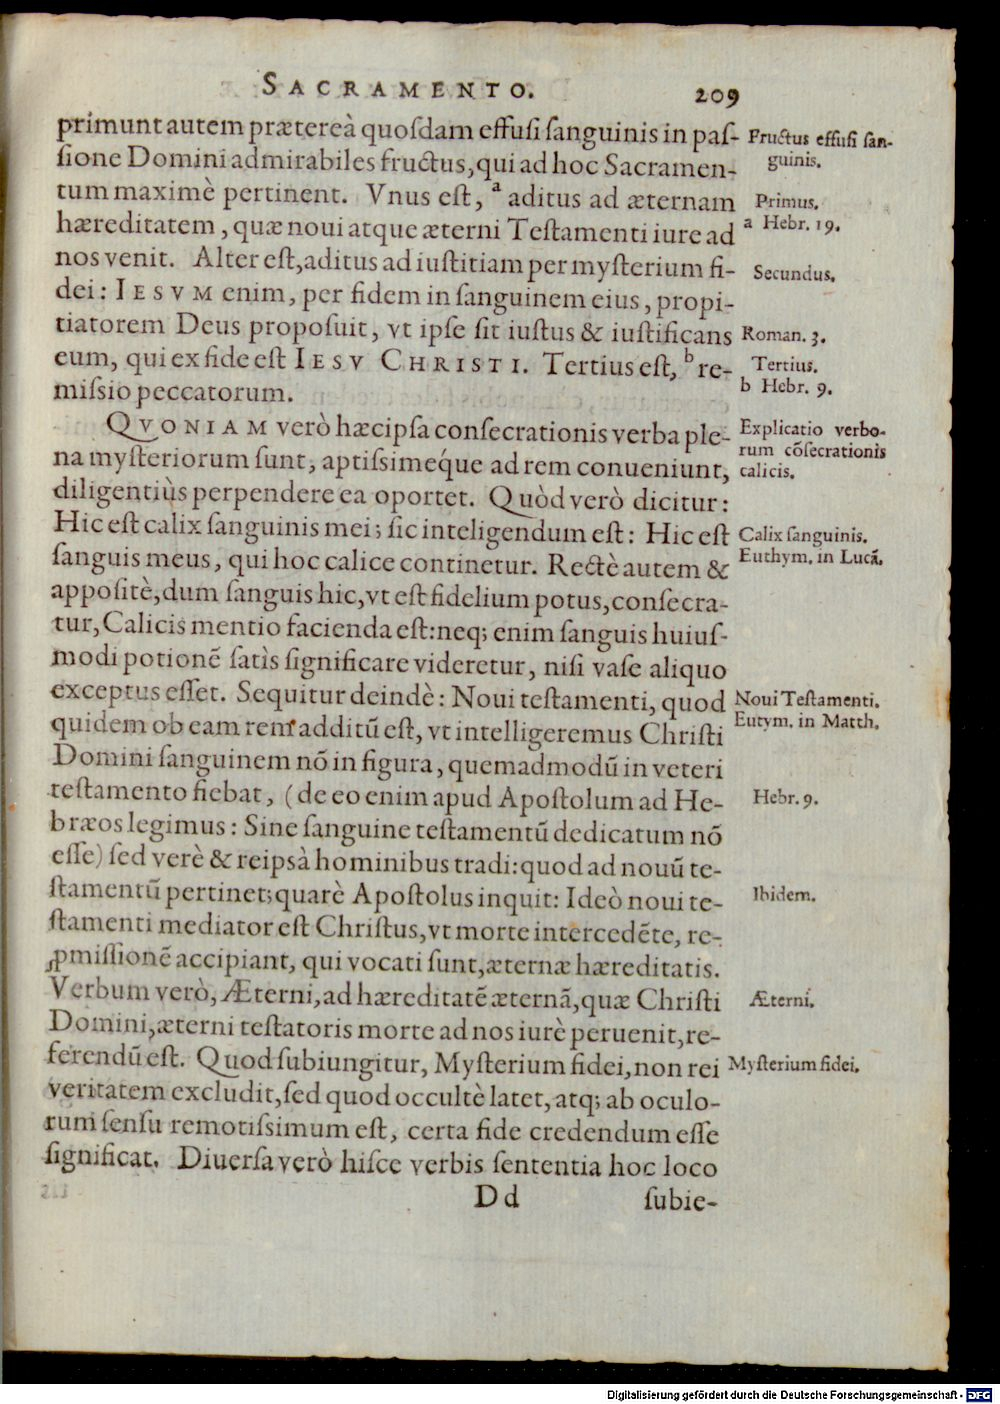 SACRAMENTO. 209
primunt autem prætereà quosdam effusi sanguinis in pas-
sione Domini admirabiles fructus, qui ad hoc Sacramen-
tum maximè pertinent. Vnus est, ᵃ aditus ad æternam
hæreditatem, quæ noui atque æterni Testamenti iure ad
nos venit. Alter est, aditus ad iustitiam per mysterium fi-
dei: IESVM enim, per fidem in sanguinem eius, propi-
tiatorem Deus proposuit, vt ipse sit iustus & iustificans
eum, qui ex fide est IESV CHRISTI. Tertius est, ᵇ re-
missio peccatorum.
QVONIAM verò hæc ipsa consecrationis verba ple-
na mysteriorum sunt, aptissimeq́ue ad rem conueniunt,
diligentiùs perpendere ea oportet. Quòd verò dicitur:
Hic est calix sanguinis mei; sic inteligendum est: Hic est
sanguis meus, qui hoc calice continetur. Rectè autem &
appositè, dum sanguis hic, vt est fidelium potus, consecra-
tur, Calicis mentio facienda est: neq; enim sanguis huius-
modi potionē satìs significare videretur, nisi vase aliquo
exceptus esset. Sequitur deindè: Noui testamenti, quod
quidem ob eam rem additū est, vt intelligeremus Christi
Domini sanguinem nō in figura, quemadmodū in veteri
testamento fiebat, (de eo enim apud Apostolum ad He-
bræos legimus: Sine sanguine testamentū dedicatum nō
esse) sed verè & reipsà hominibus tradi: quod ad nouū te-
stamentū pertinet; quarè Apostolus inquit: Ideò noui te-
stamenti mediator est Christus, vt morte intercedēte, re-
ꝓmissionē accipiant, qui vocati sunt, æternæ hæreditatis.
Verbum verò, Æterni, ad hæreditatē æternā, quæ Christi
Domini, æterni testatoris morte ad nos iurè peruenit, re-
ferendū est. Quod subiungitur, Mysterium fidei, non rei
veritatem excludit, sed quod occultè latet, atq; ab oculo-
rum sensu remotissimum est, certa fide credendum esse
significat. Diuersa verò hisce verbis sententia hoc loco
Dd subie-
Fructus effusi san-
guinis.
Primus.
a Hebr. 19.
Secundus.
Roman. 3.
Tertius.
b Hebr. 9.
Explicatio verbo-
rum cōsecrationis
calicis.
Calix sanguinis.
Euthym. in Lucā.
Noui Testamenti.
Eutym. in Matth.
Hebr. 9.
Ibidem.
Æterni.
Mysterium fidei.
Digitalisierung gefördert durch die Deutsche Forschungsgemeinschaft - DFG